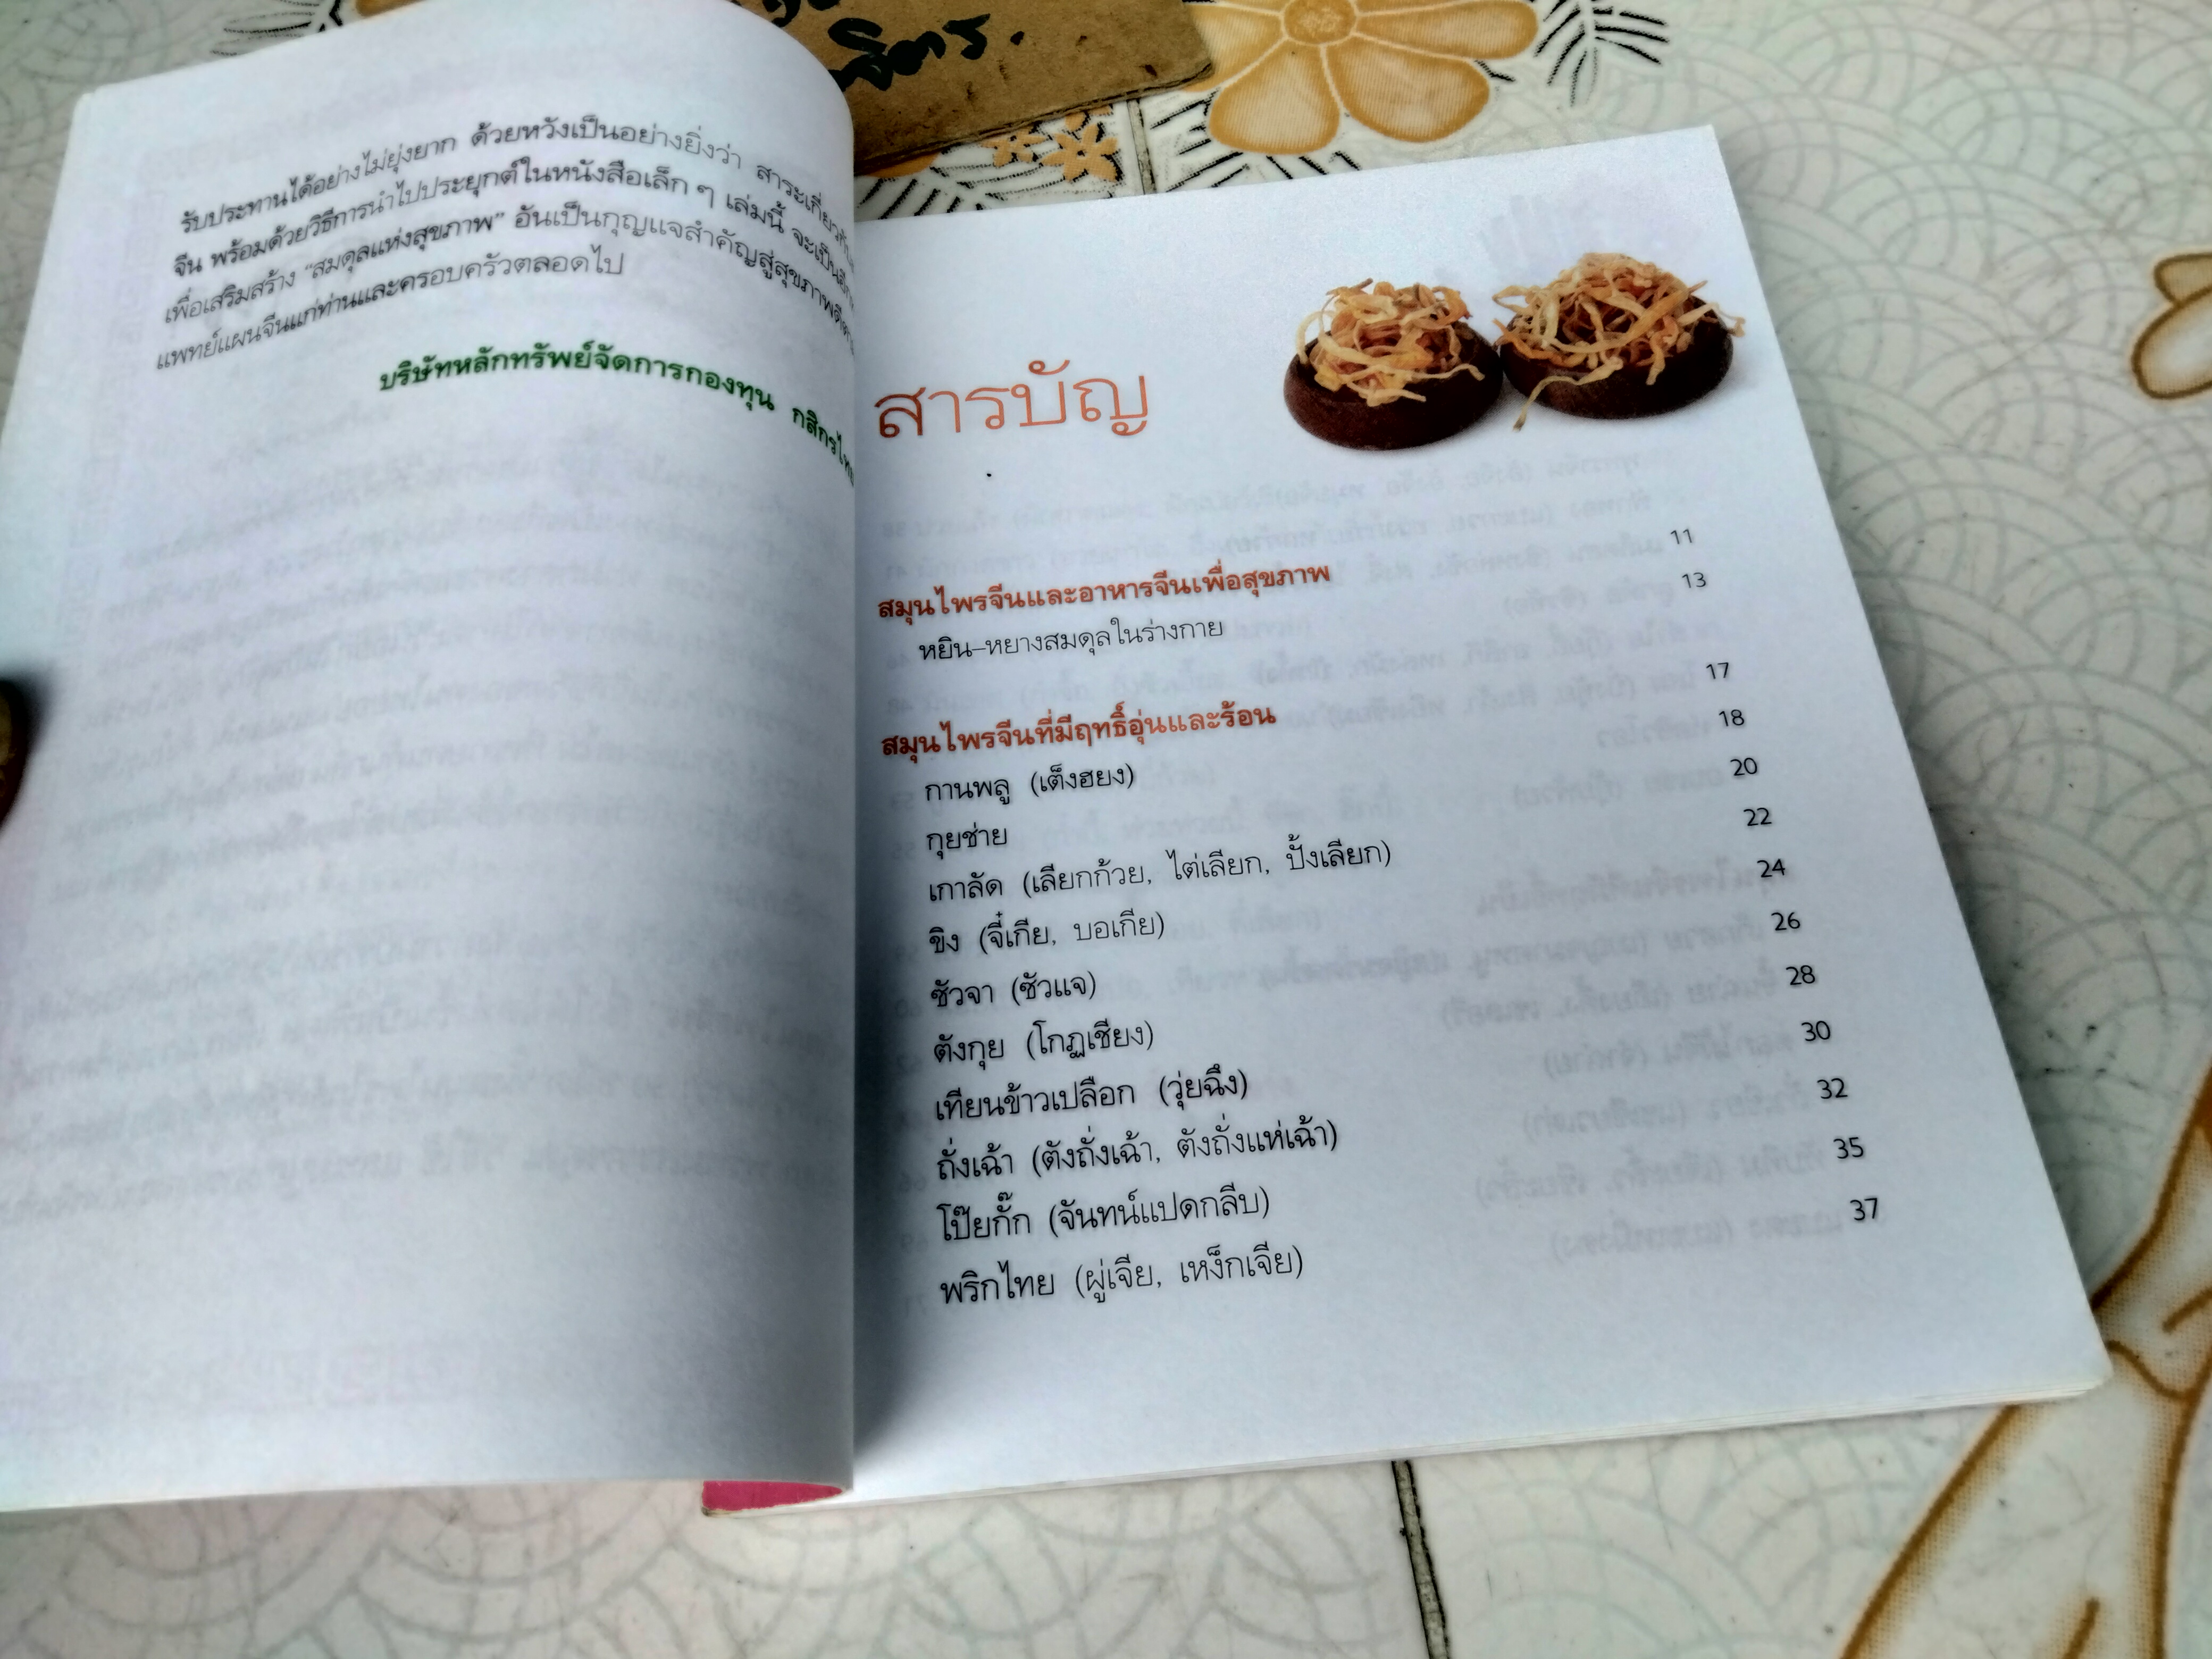 จิตร.
รับประทานได้อย่างไม่ยุ่งยาก ด้วยหวังเป็นอย่างยิ่งว่า สาระเกี่ยวกับ
จีน พร้อมด้วยวิธีการนำไปประยุกต์ในหนังสือเล็ก ๆ เล่มนี้ จะเป็น
เพื่อเสริมสร้าง “สมดุลแห่งสุขภาพ” อันเป็นกุญแจสำคัญสู่สุขภาพดี
แพทย์แผนจีนแก่ท่านและครอบครัวตลอดไป
บริษัทหลักทรัพย์จัดการกองทุน กสิกรไทย
สารบัญ
สมุนไพรจีนและอาหารจีนเพื่อสุขภาพ 11
หยิน–หยางสมดุลในร่างกาย 13
สมุนไพรจีนที่มีฤทธิ์อุ่นและร้อน 17
กานพลู (เต็งฮยง) 18
กุยช่าย 20
เกาลัด (เลียกก้วย, ไต่เลียก, ปั้งเลียก) 22
ขิง (จี๋เกีย, บอเกีย) 24
ซัวจา (ซัวแจ) 26
ตังกุย (โกฏเชียง) 28
เทียนข้าวเปลือก (วุ่ยฉึง) 30
ถั่งเฉ้า (ตังถั่งเฉ้า, ตังถั่งแห่เฉ้า) 32
โป๊ยกั๊ก (จันทน์แปดกลีบ) 35
พริกไทย (ผู่เจีย, เหง็กเจีย) 37